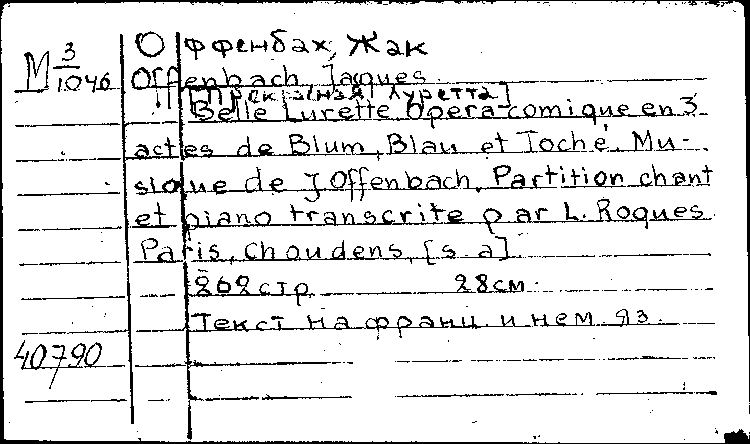 М 3/1046
Оффенбах, Жак
Offenbach, Jacques
[Прекрасная Луретта]
Belle Lurette Opéra-comique en 3
actes de Blum, Blau et Toché. Mu-
sique de J Offenbach. Partition chant
et piano transcrite par L. Roques
Paris, Choudens, [s. a].
262 стр. 28 см.
Текст на франц. и нем. яз.
40790